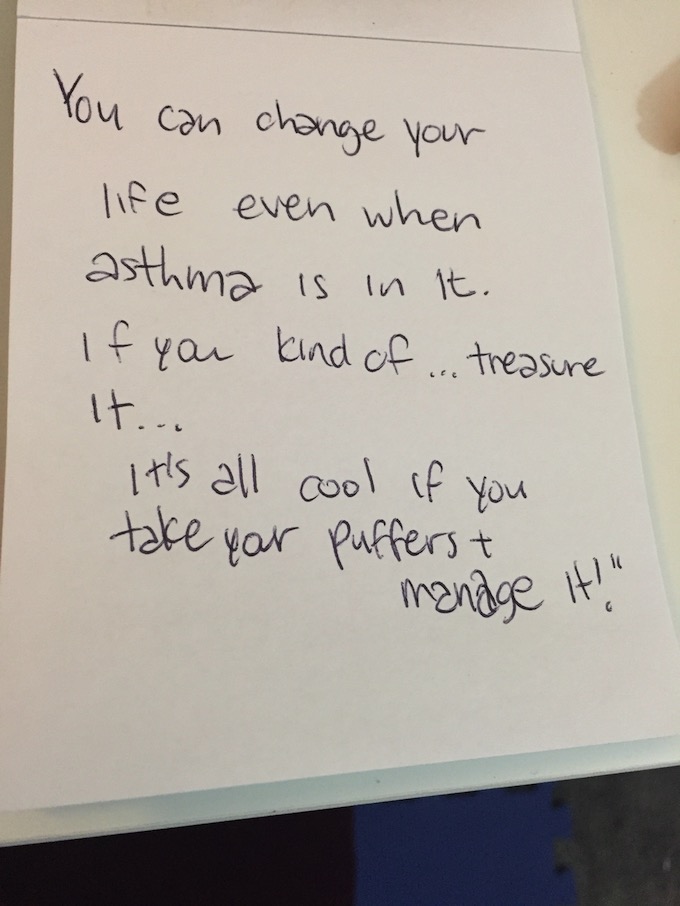 You can change your
life even when
asthma is in it.
If you kind of... treasure
it...
It's all cool if you
take your puffers +
manage it!"